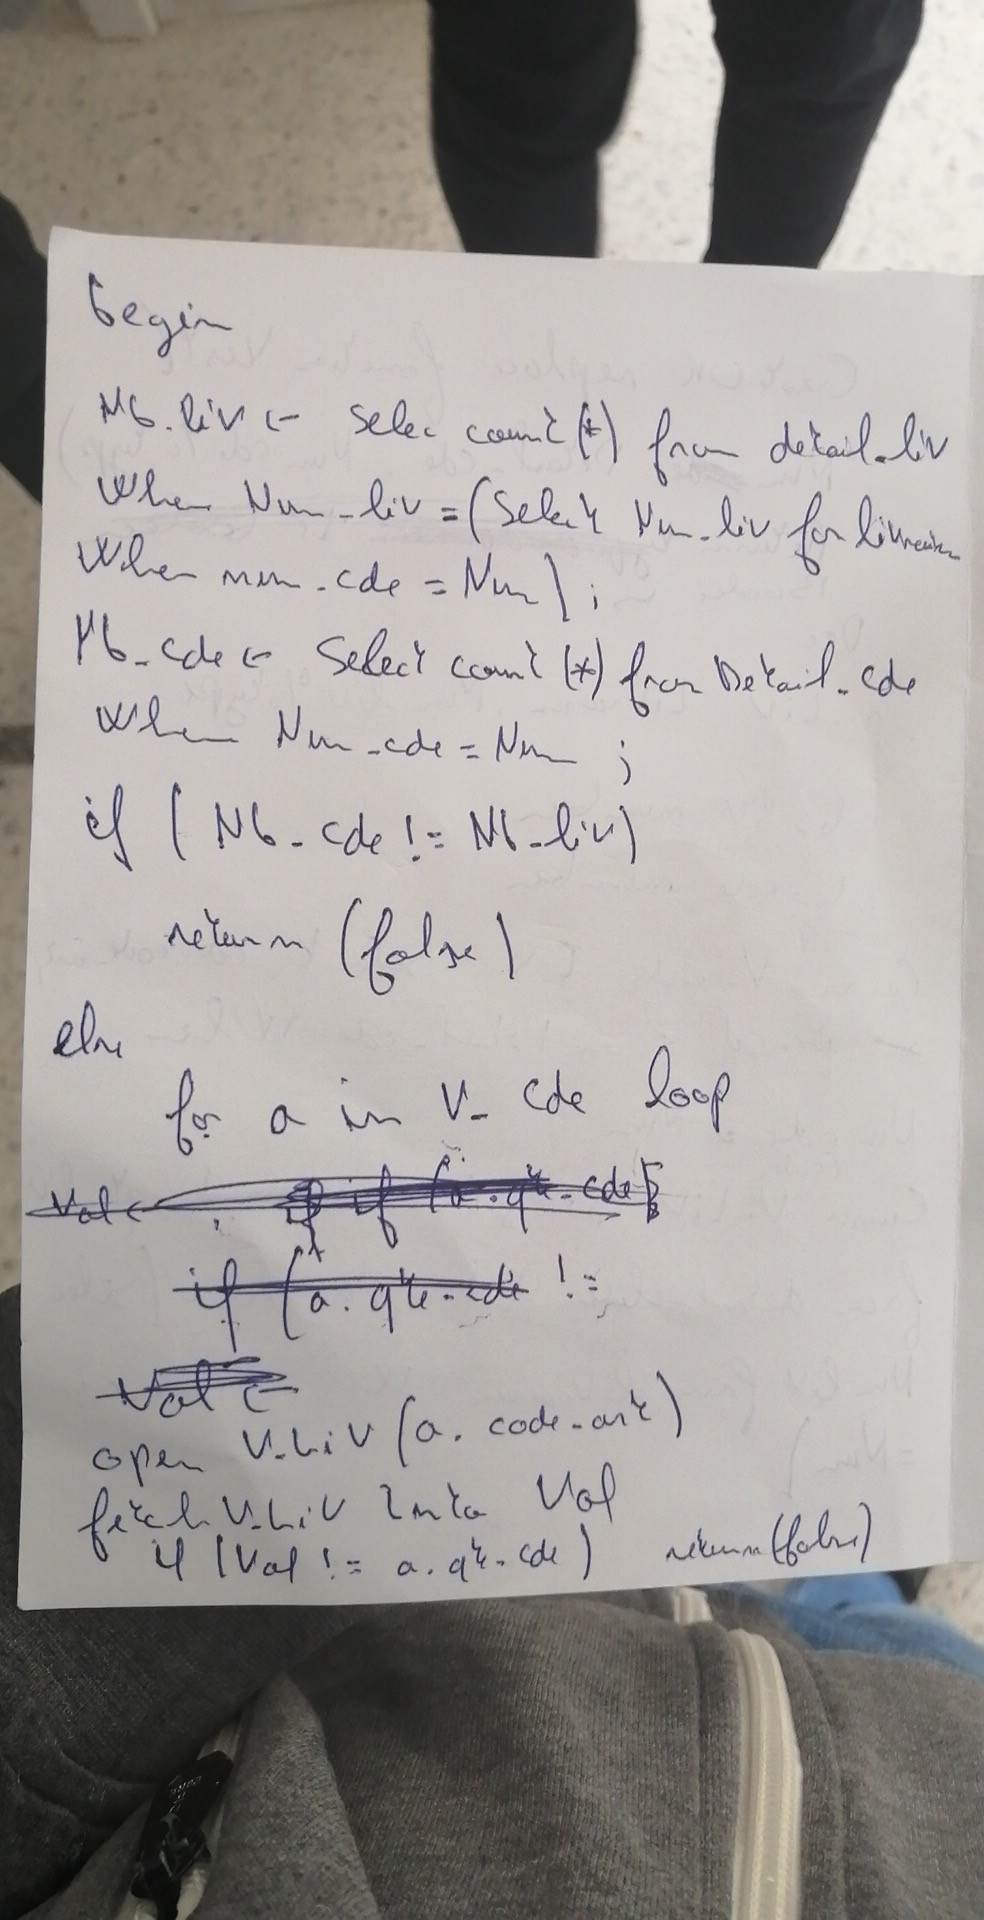 begin
Nb_liv <- Selec count(*) from detail_liv
When Num_liv = (Select Num_liv for livraison
When num_cde = Num);
Nb_cde <- Select count(*) from Detail_cde
When Num_cde = Num ;
if (Nb_cde != Nb_liv)
return (false)
else
for a in V_cde loop
Val <- if (a.qte_cde)
if (a.qte_cde !=
Val <-
open V_Liv (a.code_art)
fetch V_Liv into Val
if (Val != a.qte_cde) return (false)